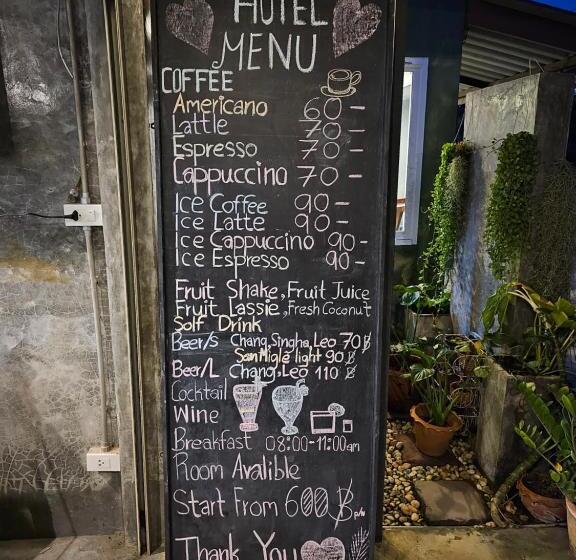 HOTEL
MENU
COFFEE
Americano 60-
Lattle 70-
Espresso 70-
Cappuccino 70-
Ice Coffee 90-
Ice Latte 90-
Ice Cappuccino 90-
Ice Espresso 90-
Fruit Shake, Fruit Juice
Fruit Lassie, Fresh Coconut
Solf Drink
Beer/S Chang, Singha, Leo 70฿
SanMigle light 90฿
Beer/L Chang, Leo 110 ฿
Cocktail
Wine
Breakfast 08:00-11:00am
Room Avalible
Start From 600฿ p/n
Thank You